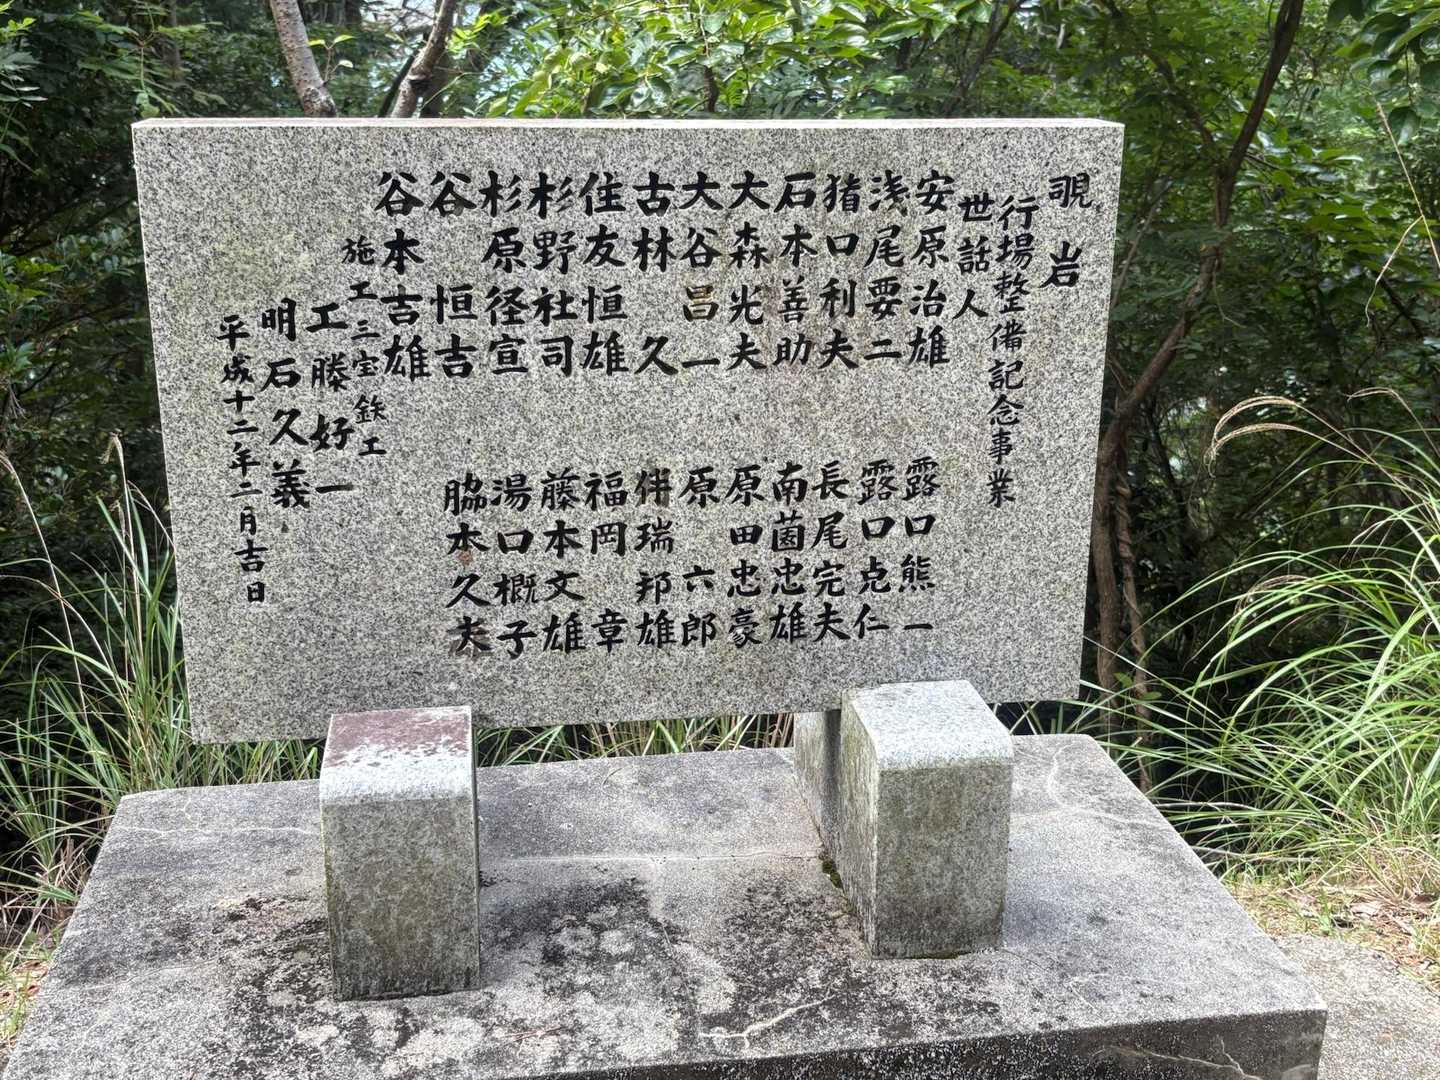 覗岩
行場整備記念事業
世話人
安原治雄
浅尾要二
猪口利夫
石本善助
大森光夫
大谷昌一
古林久
住友恒雄
杉野社司
杉原径宣
谷恒吉
谷本吉雄
露口熊一
露口克仁
長尾完夫
南薗忠雄
原田忠豪
原六郎
伴瑞邦雄
福岡章
藤本文雄
湯口概子
脇本久夫
施工三宝鉄工
工藤好一
明石久義
平成十二年二月吉日